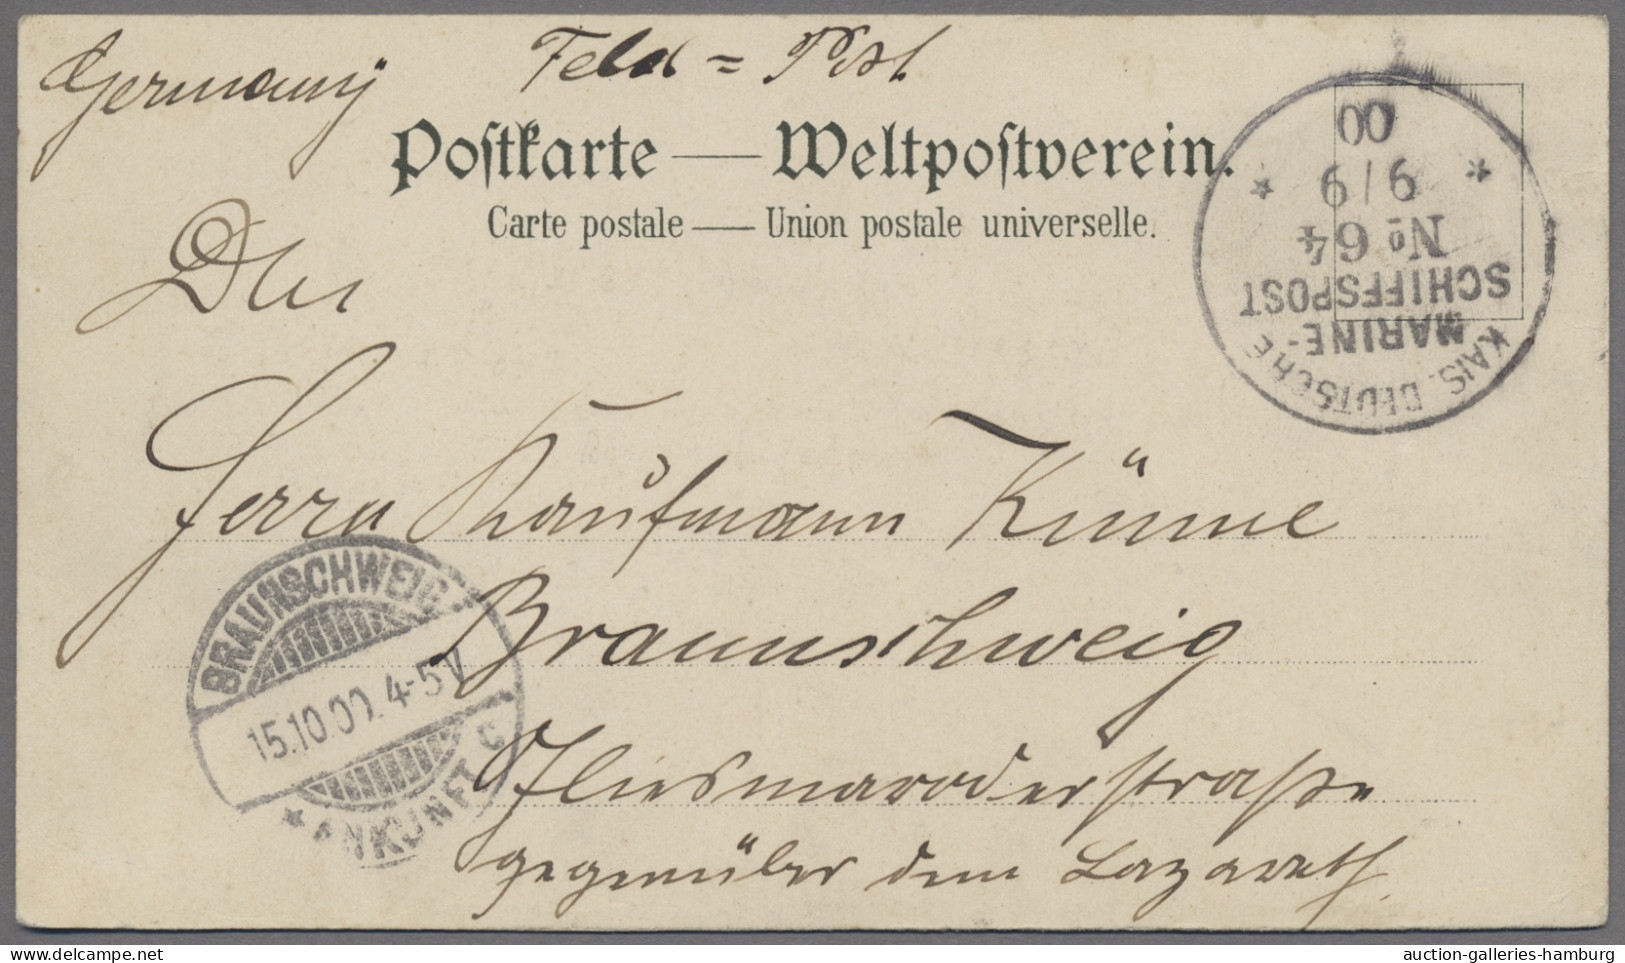 Germany
Feld = Post
Postkarte — Weltpostverein.
Carte postale — Union postale universelle.
KAIS. DEUTSCHE
MARINE-
SCHIFFSPOST
No 64
9/9
00
Herrn Kaufmann Künne
Braunschweig
Gliesmaroderstraße
gegenüber dem Lazareth.
BRAUNSCHWEIG
15.10.00. 4-5V
* ANKUNFT C
auction-galleries-hamburg